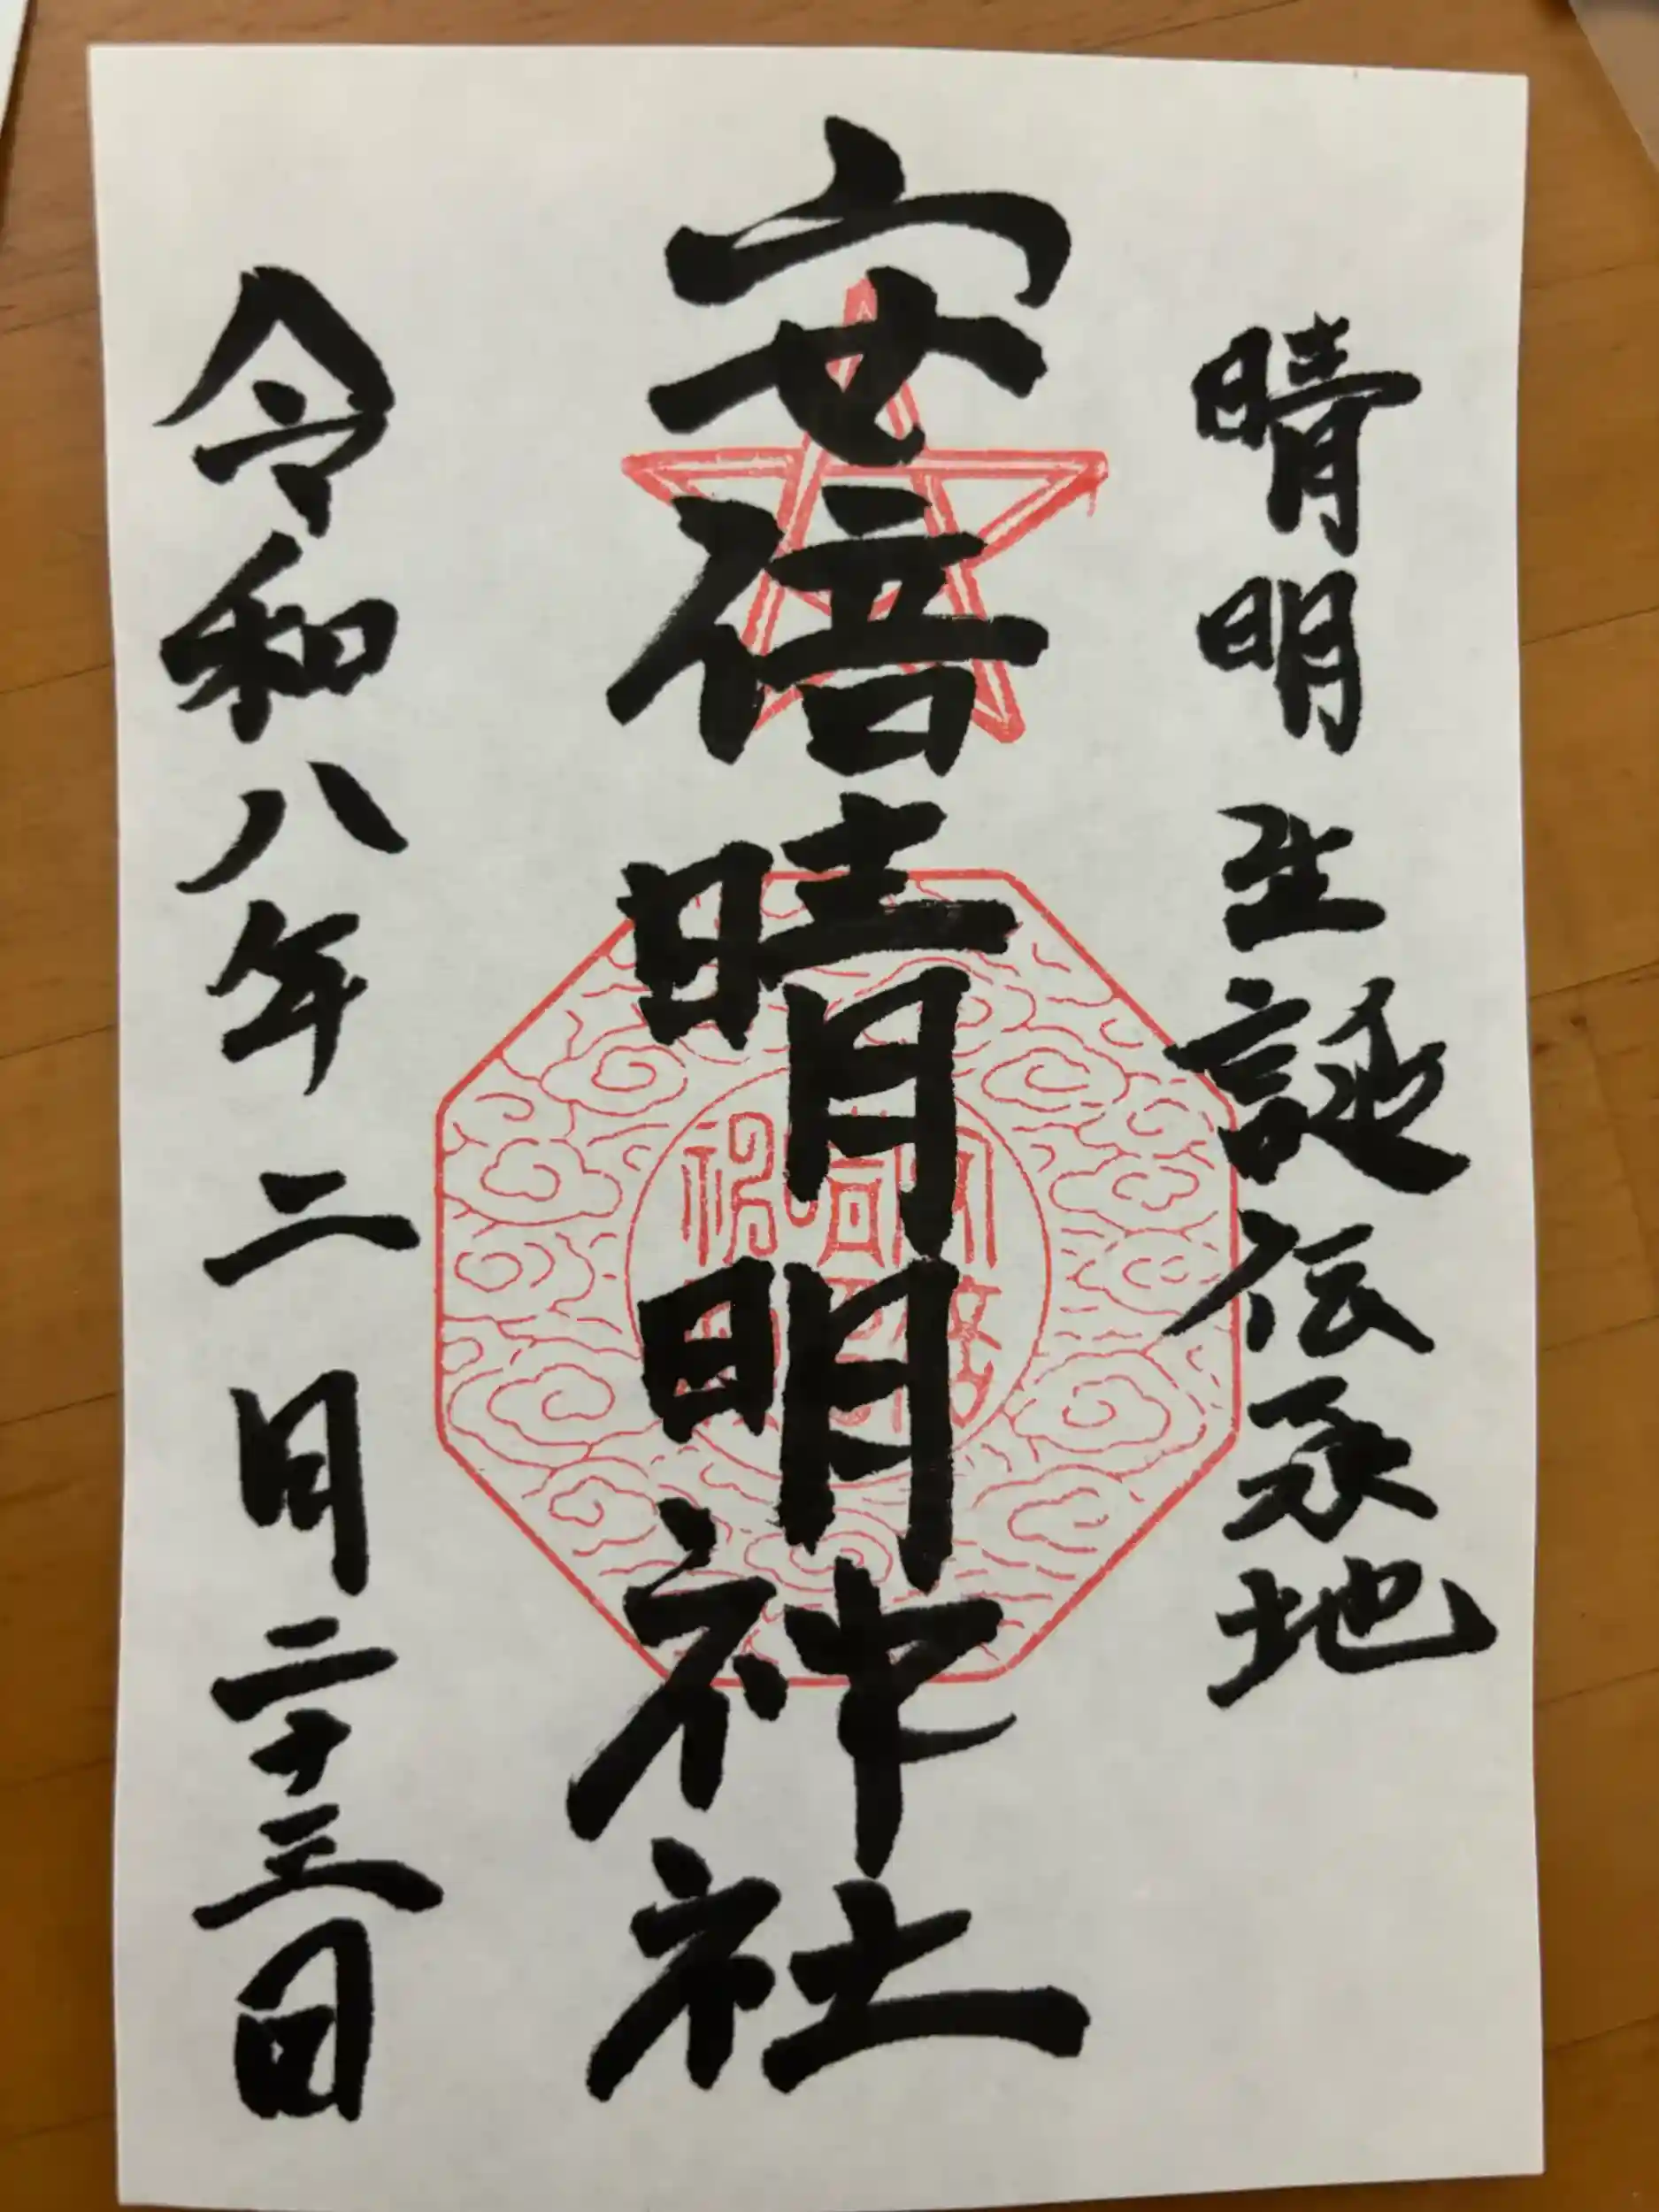 晴明生誕伝承地
安倍晴明神社
令和八年二月二十三日